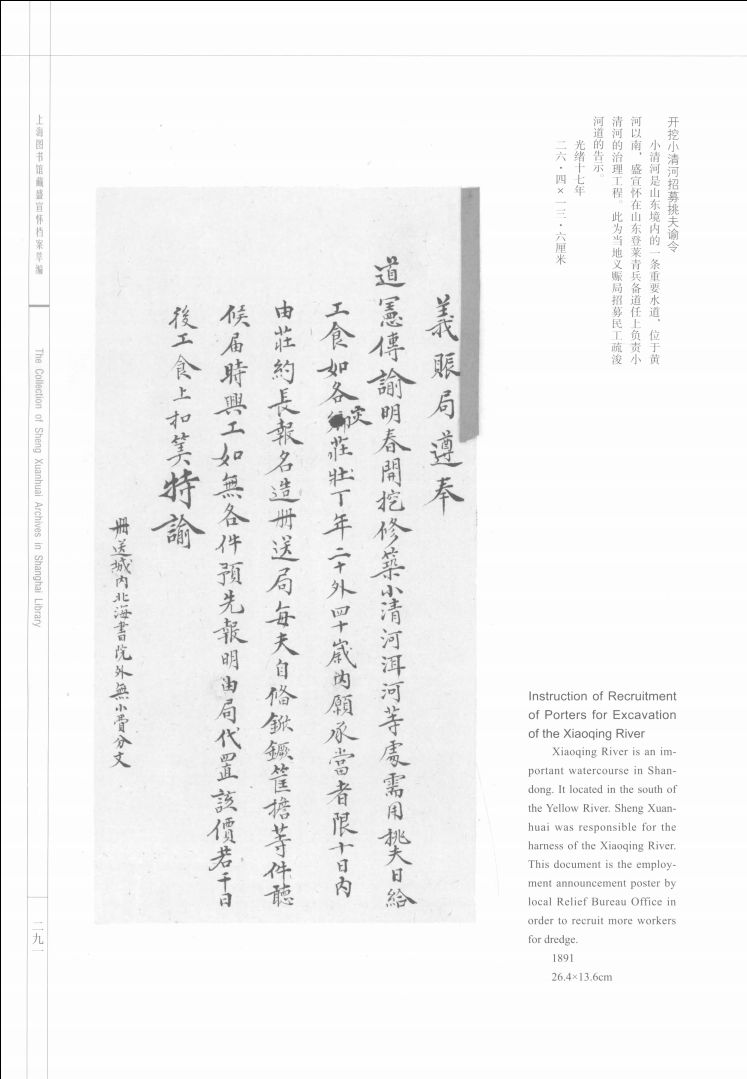 上海图书馆藏盛宣怀档案萃编
The Collection of Sheng Xuanhuai Archives in Shanghai Library
二九一
开挖小清河招募挑夫谕令
小清河是山东境内的一条重要水道，位于黄
河以南，盛宣怀在山东登莱青兵备道任上负责小
清河的治理工程。此为当地义赈局招募民工疏浚
河道的告示。
光绪十七年
二六·四×一三·六厘米
義賬局遵奉
道憲傳諭明春開挖修築小清河洱河等處需用挑夫日給
工食如各莊壯丁年二十外四十歲內願承當者限十日內
由莊約長報名造冊送局每夫自俻鍁鐝筐擔等件聽
候屆時興工如無各件預先報明由局代置該價若干日
後工食上扣筭特諭
冊送城內北海書院外無小費分文
Instruction of Recruitment
of Porters for Excavation
of the Xiaoqing River
Xiaoqing River is an im-
portant watercourse in Shan-
dong. It located in the south of
the Yellow River. Sheng Xuan-
huai was responsible for the
harness of the Xiaoqing River.
This document is the employ-
ment announcement poster by
local Relief Bureau Office in
order to recruit more workers
for dredge.
1891
26.4×13.6cm